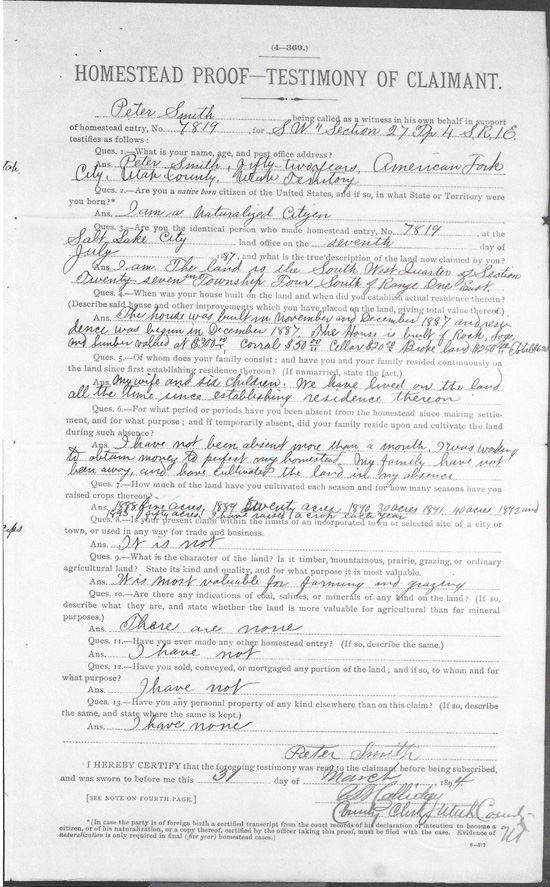 (4—369.)
HOMESTEAD PROOF—TESTIMONY OF CLAIMANT.
Peter Smith being called as a witness in his own behalf in support
of homestead entry, No. 7819, for S.W. Section 27 Tp 4 S.R.1E.
testifies as follows:
Ques. 1.—What is your name, age, and post office address?
Ans. Peter Smith, fifty-two years, American Fork
City, Utah County, Utah Territory
Ques. 2.—Are you a native born citizen of the United States, and if so, in what State or Territory were
you born?*
Ans. I am a Naturalized Citizen
Ques. 3.—Are you the identical person who made homestead entry, No. 7819, at the
Salt Lake City land office on the seventh day of
July 1887, and what is the true description of the land now claimed by you?
Ans. I am. The land is the South West Quarter of Section
Twenty seven in Township Four South of Range One East.
Ques. 4.—When was your house built on the land and when did you establish actual residence therein?
(Describe said house and other improvements which you have placed on the land, giving total value thereof.)
Ans. The house was built in November and December 1887 and resi-
dence was begun in December 1887. The House is built of Rock, Logs
and lumber valued at $300 Corral $50 Cellar $20 Broke land $250
Ques. 5.—Of whom does your family consist; and have you and your family resided continuously on
the land since first establishing residence thereon? (If unmarried, state the fact.)
Ans. My wife and six children. We have lived on the land
all the time since establishing residence thereon
Ques. 6.—For what period or periods have you been absent from the homestead since making settle-
ment, and for what purpose; and if temporarily absent, did your family reside upon and cultivate the land
during such absence?
Ans. I have not been absent more than a month. I was working
to obtain money to perfect my homestead. My family have not
been away, and have cultivated the land in my absence
Ques. 7.—How much of the land have you cultivated each season and for how many seasons have you
raised crops thereon?
Ans. 1888 five acres, 1889 Twenty acres, 1890 30 acres 1891, 40 acres 1892 and
1893 fifty acres. I have raised a crop each year
Ques. 8.—Is your present claim within the limits of an incorporated town or selected site of a city or
town, or used in any way for trade and business.
Ans. It is not
Ques. 9.—What is the character of the land? Is it timber, mountainous, prairie, grazing, or ordinary
agricultural land? State its kind and quality, and for what purpose it is most valuable.
Ans. It is most valuable for farming and grazing
Ques. 10.—Are there any indications of coal, salines, or minerals of any kind on the land? (If so,
describe what they are, and state whether the land is more valuable for agricultural than for mineral
purposes.)
Ans. There are none
Ques. 11.—Have you ever made any other homestead entry? (If so, describe the same.)
Ans. I have not
Ques. 12.—Have you sold, conveyed, or mortgaged any portion of the land; and if so, to whom and for
what purpose?
Ans. I have not
Ques. 13.—Have you any personal property of any kind elsewhere than on this claim? (If so, describe
the same, and state where the same is kept.)
Ans. I have none
Peter Smith
I HEREBY CERTIFY that the foregoing testimony was read to the claimant before being subscribed,
and was sworn to before me this 31 day of March 1894
[SEE NOTE ON FOURTH PAGE.]
County Clerk Utah County
*(In case the party is of foreign birth a certified transcript from the court records of his declaration of intention to become a
citizen, or of his naturalization, or a copy thereof, certified by the officer taking this proof, must be filed with the case. Evidence of
naturalization is only required in final (five year) homestead cases.)